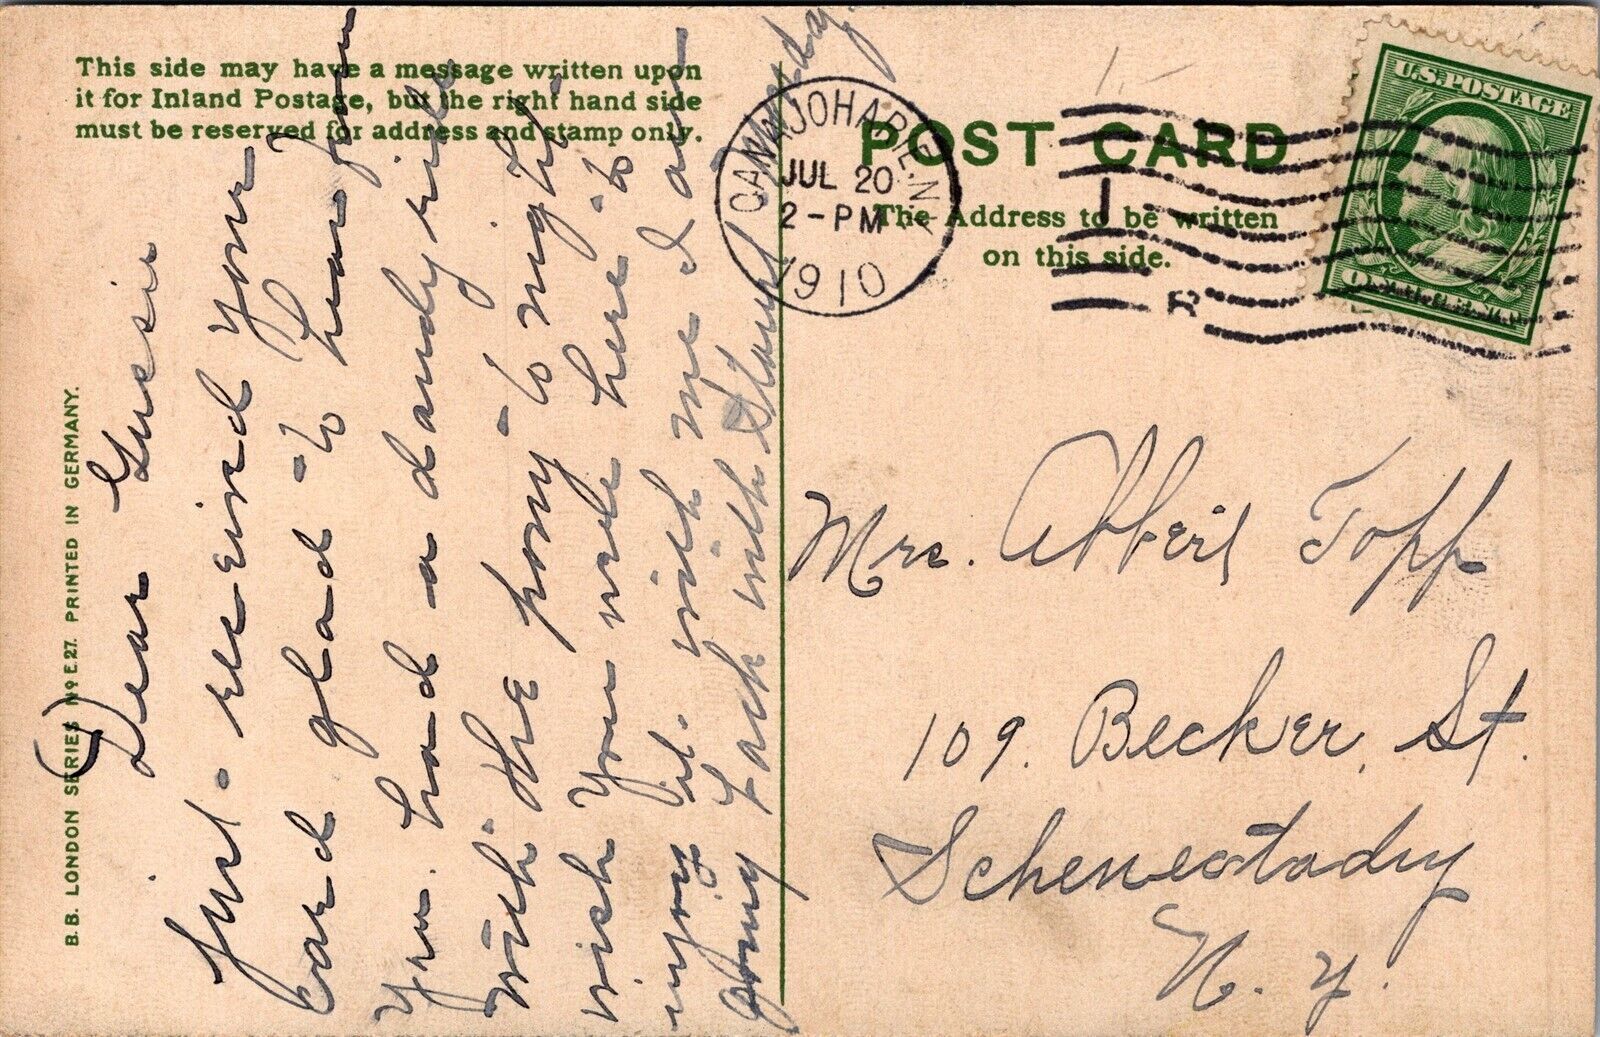 This side may have a message written upon
it for Inland Postage, but the right hand side
must be reserved for address and stamp only.
POST CARD
The Address to be written
on this side.
CANAJOHARIE, N.Y.
JUL 20
2-PM
1910
1
U.S. POSTAGE
B. B. LONDON SERIES No E.27. PRINTED IN GERMANY.
Dear Gussie
Just received your
card glad to hear from
you. had a dandy ride
with the pony to night
wish you were here to
injoy it with me I am
going back with Stant
Mrs. Abbert Topp
109. Becker. St.
Schenectady
N. Y.